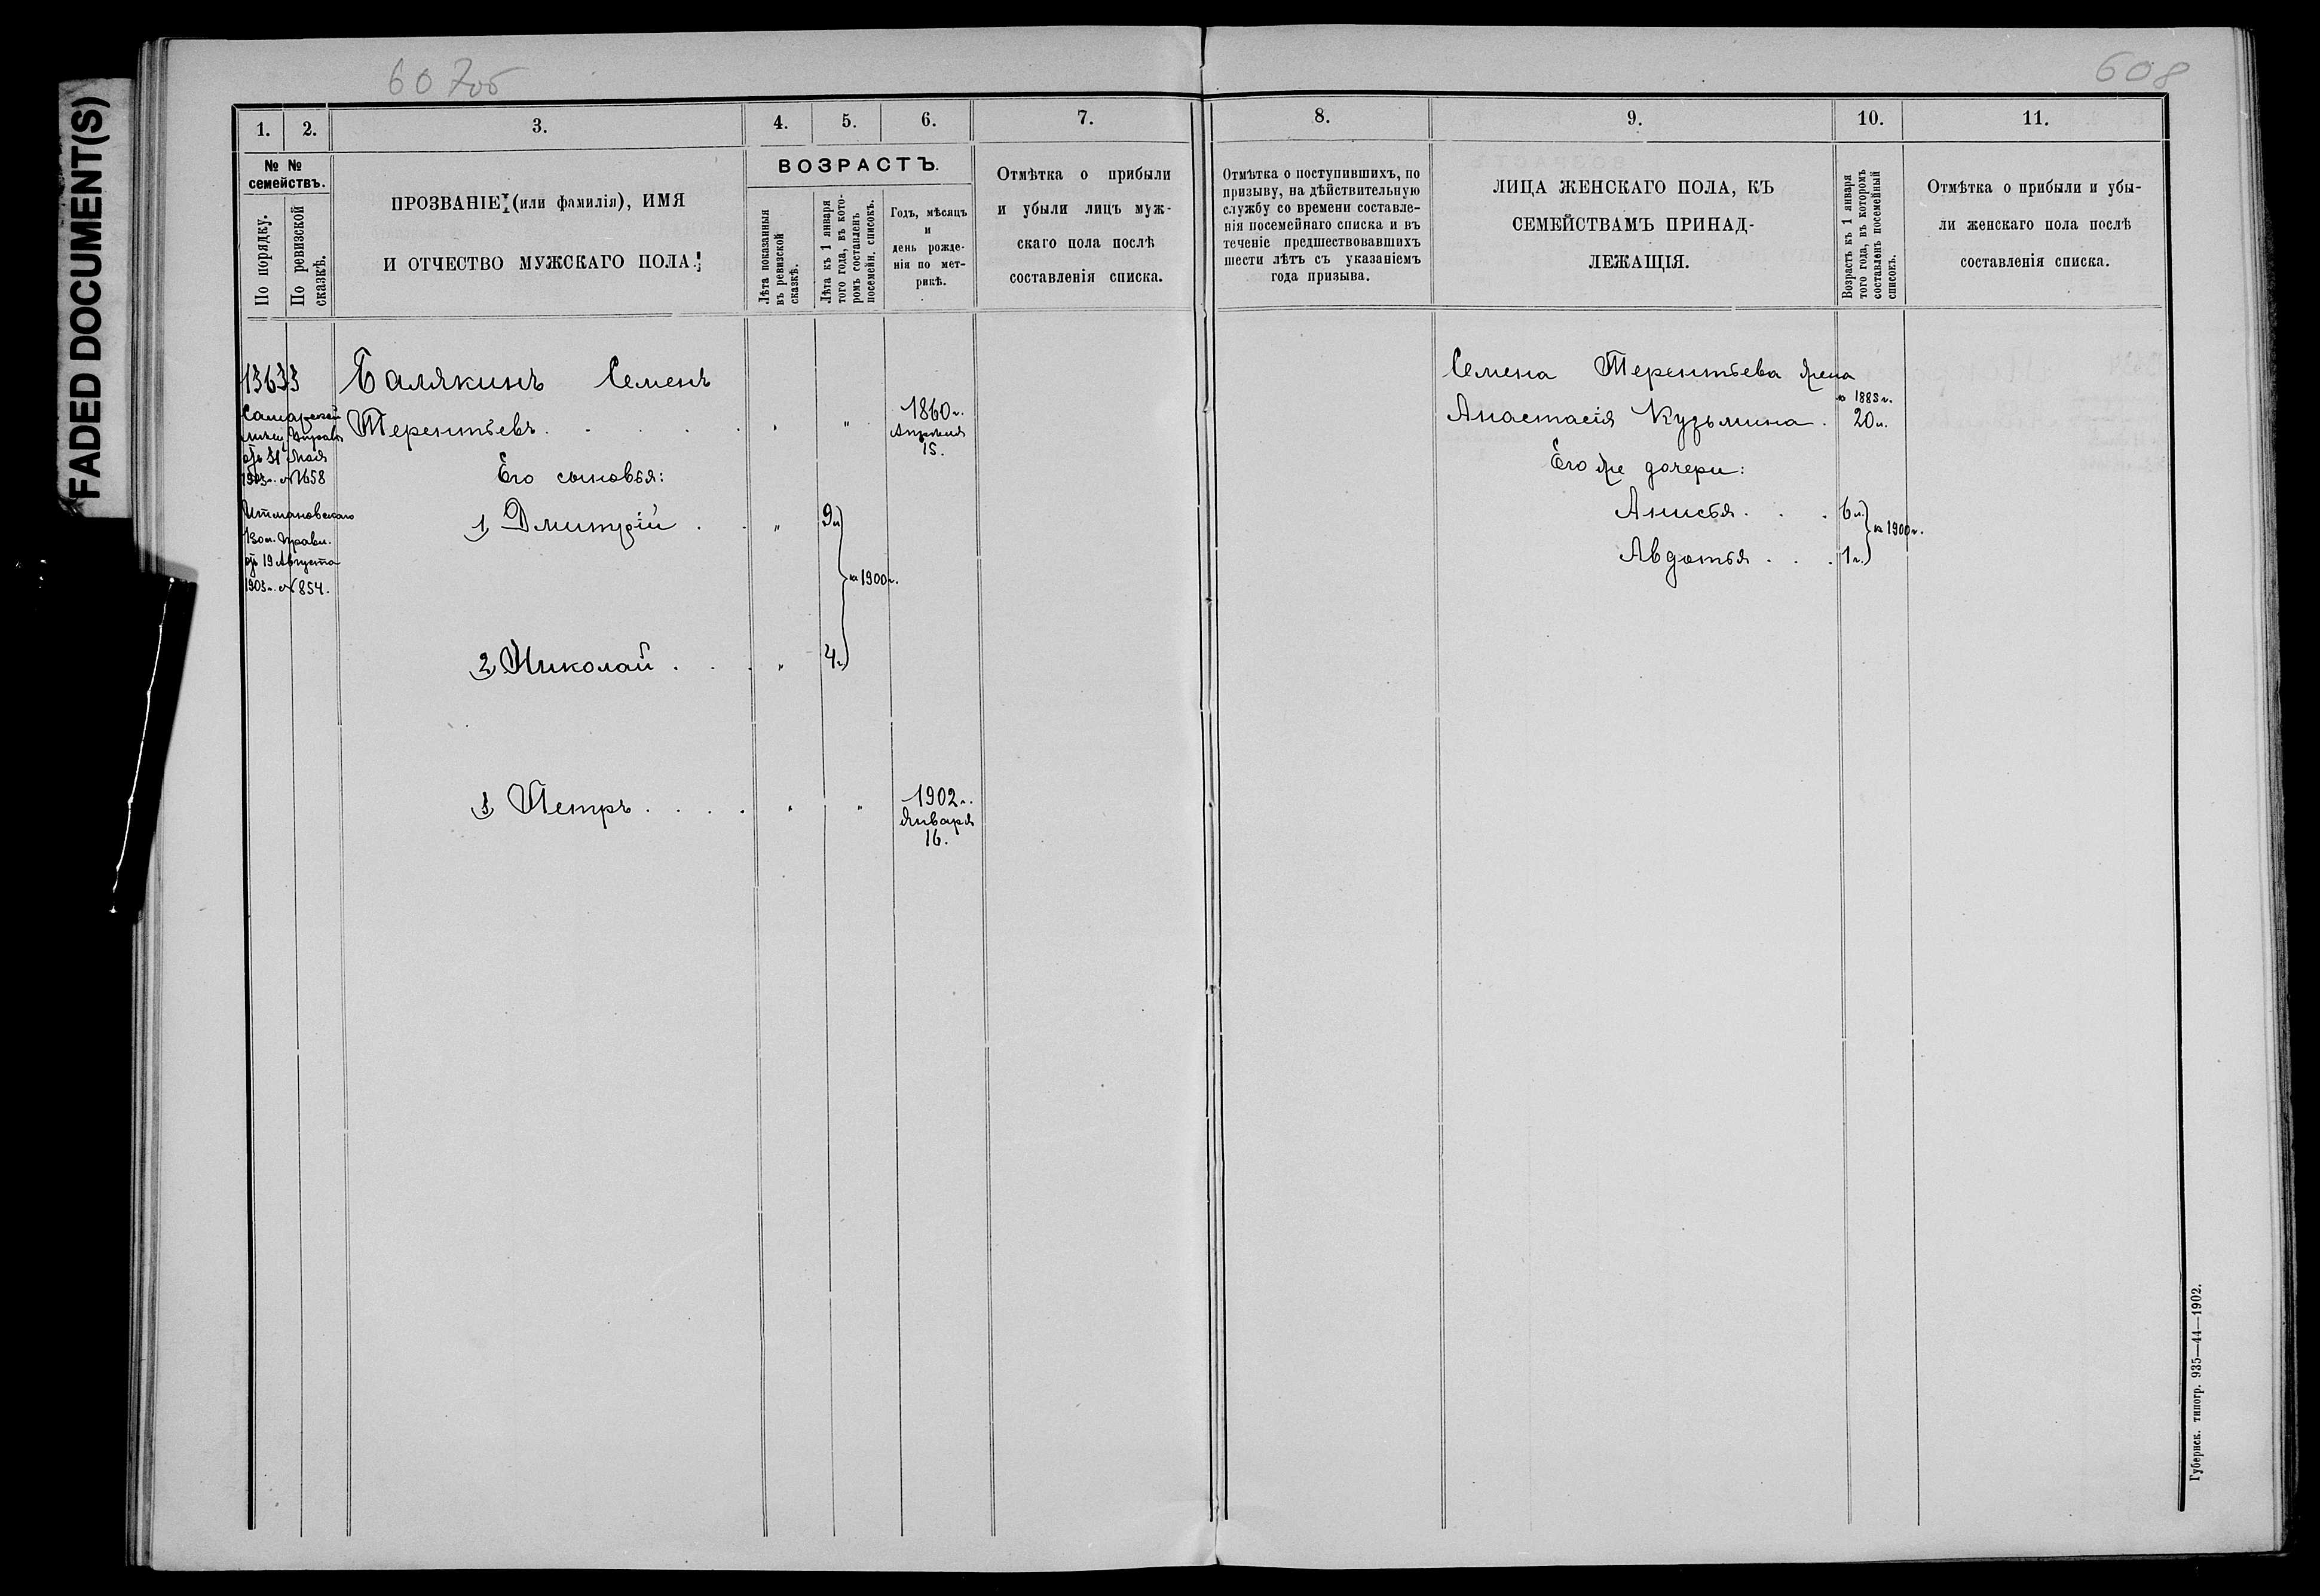 FADED DOCUMENT(S)
607об
608
1.
2.
3.
4.
5.
6.
7.
8.
9.
10.
11.
№ №
семействъ.
По порядку.
По ревизской
сказкѣ.
ПРОЗВАНІЕ (или фамилія), ИМЯ
И ОТЧЕСТВО МУЖСКАГО ПОЛА.
ВОЗРАСТЪ.
Лѣта показанныя
въ ревизской
сказкѣ.
Лѣта къ 1 января
того года, въ кото-
ромъ составленъ
посемейн. списокъ.
Годъ, мѣсяцъ
и
день рожде-
нія по мет-
рикѣ.
Отмѣтка о прибыли
и убыли лицъ муж-
скаго пола послѣ
составленія списка.
Отмѣтка о поступившихъ, по
призыву, на дѣйствительную
службу со времени составле-
нія посемейнаго списка и въ
теченіе предшествовавшихъ
шести лѣтъ съ указаніемъ
года призыва.
ЛИЦА ЖЕНСКАГО ПОЛА, КЪ
СЕМЕЙСТВАМЪ ПРИНАД-
ЛЕЖАЩІЯ.
Возрастъ къ 1 января
того года, въ которомъ
составленъ посемейный
списокъ.
Отмѣтка о прибыли и убы-
ли женскаго пола послѣ
составленія списка.
13633
Самарской
мѣщ. Управы
отъ 31 Мая
1903 г. № 1658
Утмановскаго
вол. Правл.
отъ 19 Августа
1903 г. № 854.
Балякинъ Семенъ
Терентьевъ . . . . " " 1860 г.
Апрѣля
15.
Его сыновья:
1, Дмитрій . . " 9 л.
к 1900 г.
2, Николай . . . " 4 г.
3, Петръ . . . . " " 1902 г.
Января
16.
Семена Терентьева жена
к 1883 г.
Анастасія Кузьмина . 20 л.
Его же дочери:
Анисья . . . 6 л.
к 1900 г.
Авдотья . . . 1 г.
Губернск. типогр. 935—44—1902.